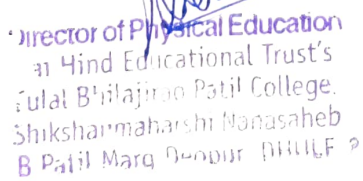 Director of Physical Education
Hind Educational Trust's
Bhilajirao Patil College.
Shiksharmaharshi Nanasaheb
B Patil Marg Deopur DHULE